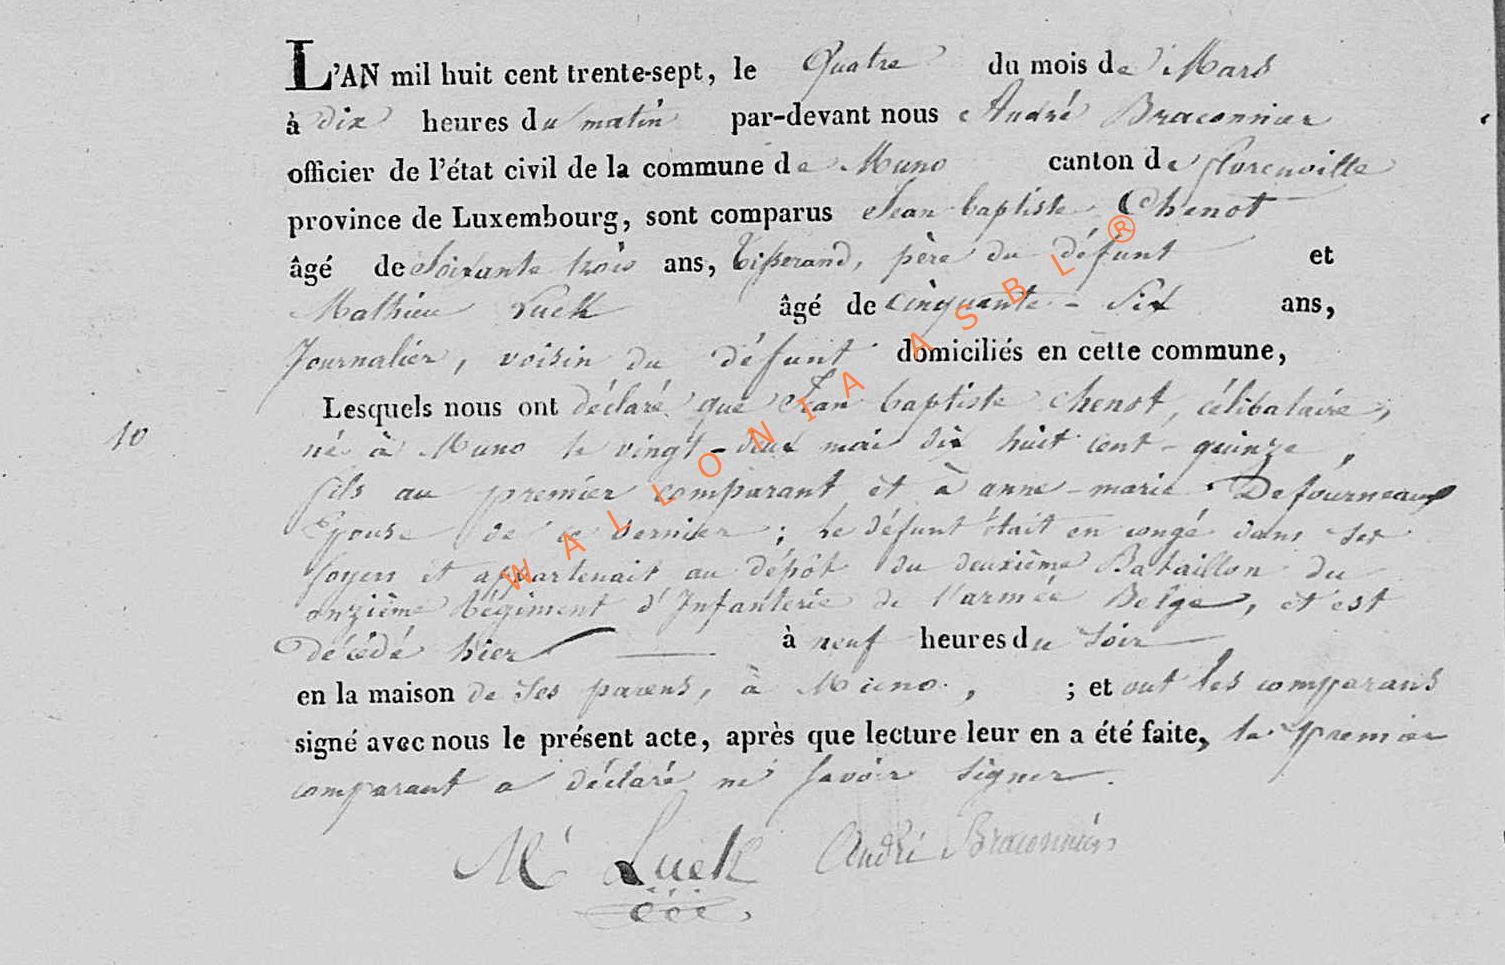 L'AN mil huit cent trente-sept, le Quatre du mois de Mars
à dix heures du matin par-devant nous André Braconnier
officier de l'état civil de la commune de Muno canton de florenville
province de Luxembourg, sont comparus Jean baptiste Chenot
âgé de Soixante trois ans, tisserand, père du défunt et
Mathieu Luck âgé de cinquante-Six ans,
Journalier, voisin du défunt domiciliés en cette commune,
Lesquels nous ont déclaré que Jean baptiste chenot, célibataire,
10
né à Muno le vingt-deux mai dix huit cent-quinze,
fils au premier comparant et à anne-marie Defourneaux
Epouse de ce dernier; Le défunt était en congé dans ses
foyers et appartenait au dépôt du deuxième Bataillon du
onzième Régiment d'Infanterie de l'armée Belge, et est
Décédé hier à neuf heures du soir
en la maison de ses parens, à Muno, ; et ont les comparans
signé avec nous le présent acte, après que lecture leur en a été faite, le premier
comparant a déclaré ne savoir signer.
Mt Luck André Braconnier
WALLONIA ASBL ®